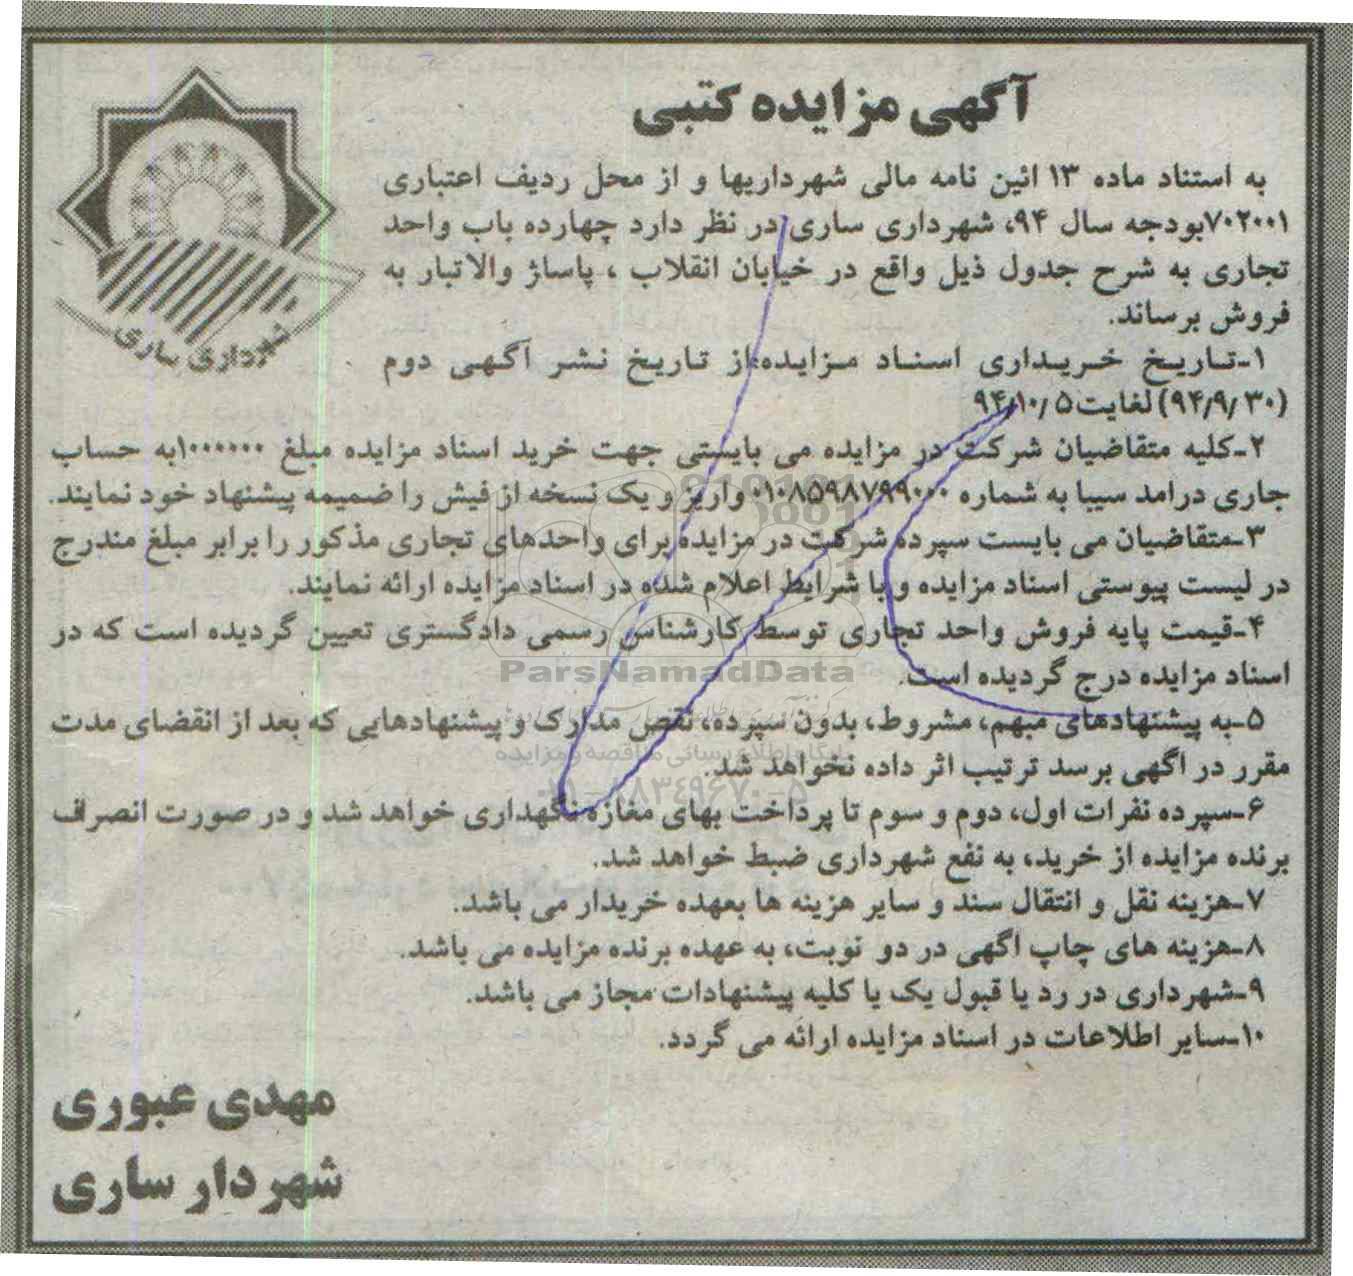 آگهی مزایده کتبی
شهرداری ساری
به استناد ماده ۱۳ ائین نامه مالی شهرداریها و از محل ردیف اعتباری
۷۰۲۰۰۱بودجه سال ۹۴، شهرداری ساری در نظر دارد چهارده باب واحد
تجاری به شرح جدول ذیل واقع در خیابان انقلاب ، پاساژ والاتبار به
فروش برساند.
۱-تاریخ خریداری اسناد مزایده:از تاریخ نشر آگهی دوم
(۹۴/۹/۳۰) لغایت۹۴/۱۰/۵
۲-کلیه متقاضیان شرکت در مزایده می بایستی جهت خرید اسناد مزایده مبلغ ۱۰۰۰۰۰۰به حساب
جاری درامد سیبا به شماره ۰۱۰۸۵۹۸۷۹۹۰۰۰ واریز و یک نسخه از فیش را ضمیمه پیشنهاد خود نمایند.
۳-متقاضیان می بایست سپرده شرکت در مزایده برای واحدهای تجاری مذکور را برابر مبلغ مندرج
در لیست پیوستی اسناد مزایده و با شرایط اعلام شده در اسناد مزایده ارائه نمایند.
۴-قیمت پایه فروش واحد تجاری توسط کارشناس رسمی دادگستری تعیین گردیده است که در
اسناد مزایده درج گردیده است.
ParsNamadData
۵-به پیشنهادهای مبهم، مشروط، بدون سپرده، نقص مدارک و پیشنهادهایی که بعد از انقضای مدت
پایگاه اطلاع رسانی مناقصه و مزایده
مقرر در اگهی برسد ترتیب اثر داده نخواهد شد.
۰۲۱-۸۸۳۴۹۶۷۰-۵
۶-سپرده نفرات اول، دوم و سوم تا پرداخت بهای مغازه نگهداری خواهد شد و در صورت انصراف
برنده مزایده از خرید، به نفع شهرداری ضبط خواهد شد.
۷-هزینه نقل و انتقال سند و سایر هزینه ها بعهده خریدار می باشد.
۸-هزینه های چاپ اگهی در دو نوبت، به عهده برنده مزایده می باشد.
۹-شهرداری در رد یا قبول یک یا کلیه پیشنهادات مجاز می باشد.
۱۰-سایر اطلاعات در اسناد مزایده ارائه می گردد.
مهدی عبوری
شهردار ساری